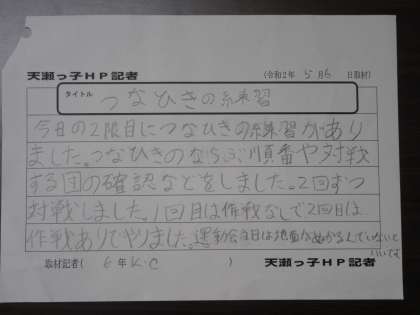 天瀬っ子HP記者
(令和2年 5月6 日取材)
タイトル
つなひきの練習
今日の2限目につなひきの練習があり
ました。つなひきのならぶ順番や対戦
する団の確認などをしました。2回ずつ
対戦しました。1回目は作戦なしで2回目は
作戦ありでやりました。運動会当日は地面がぬかるんでいないと
いいです
取材記者( 6年 K.C )
天瀬っ子HP記者